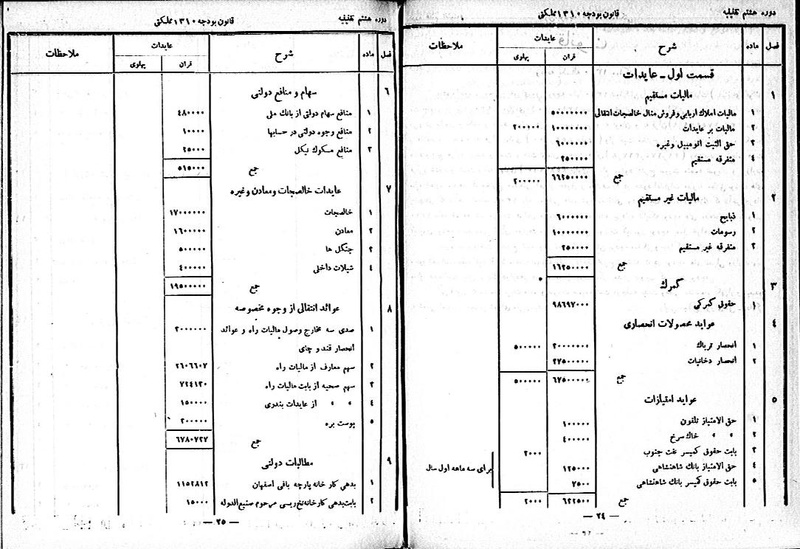 دوره هشتم تقنینیه
قانون بودجه ۱۳۱۰ مملکتی
فصل ماده شرح عایدات ملاحظات
قران پهلوی
قسمت اول ـ عایدات
۱ مالیات مستقیم
۱ مالیات املاک اربابی و فروش منال خالصجات انتقالی ۵۰۰۰۰۰۰۰
۲ مالیات بر عایدات ۱۰۰۰۰۰۰۰ ۲۰۰۰۰۰
۳ حق الثبت اتومبیل وغیره ۶۰۰۰۰۰۰
۴ متفرقه مستقیم ۲۵۰۰۰۰
جمع ۶۶۲۵۰۰۰۰ ۲۰۰۰۰۰
۲ مالیات غیر مستقیم
۱ ذبایح ۶۰۰۰۰۰۰
۲ رسومات ۱۰۰۰۰۰۰۰
۳ متفرقه غیر مستقیم ۲۵۰۰۰۰
جمع ۱۶۲۵۰۰۰۰
۳ گمرک
۱ حقوق گمرکی ۹۸۶۹۷۰۰۰
۴ عواید محصولات انحصاری
۱ انحصار تریاک ۲۰۰۰۰۰۰۰ ۵۰۰۰۰۰
۲ انحصار دخانیات ۴۷۵۰۰۰۰۰
جمع ۶۷۵۰۰۰۰۰ ۵۰۰۰۰۰
۵ عواید امتیازات
۱ حق الامتیاز تلفون ۱۰۰۰۰۰
۲ » » خاک سرخ ۴۰۰۰۰۰
۳ بابت حقوق کمیسر نفت جنوب ۲۰۰۰
۴ حق الامتیاز بانک شاهنشاهی ۱۲۵۰۰۰ برای سه ماهه اول سال
۵ بابت حقوق کمیسر بانک شاهنشاهی ۷۵۰۰
جمع ۶۳۲۵۰۰ ۲۰۰۰
ـ ۲۴ ـ
دوره هشتم تقنینیه
قانون بودجه ۱۳۱۰ مملکتی
فصل ماده شرح عایدات ملاحظات
قران پهلوی
۶ سهام و منافع دولتی
۱ منافع سهام دولتی از بانک ملی ۴۸۰۰۰۰
۲ منافع وجوه دولتی در حسابها ۱۰۰۰۰
۳ منافع مسکوک نیکل ۲۵۰۰۰
جمع ۵۱۵۰۰۰
۷ عایدات خالصجات ومعادن وغیره
۱ خالصجات ۱۷۰۰۰۰۰۰
۲ معادن ۱۶۰۰۰۰۰
۳ جنگل ها ۵۰۰۰۰۰
۴ شیلات داخلی ۴۰۰۰۰۰
جمع ۱۹۵۰۰۰۰۰
۸ عوائد انتقالی از وجوه مخصوصه
۱ صدی سه مخارج وصول مالیات راه و عوائد ۳۰۰۰۰۰۰
انحصار قند و چای
۲ سهم معارف از مالیات راه ۲۶۰۶۶۰۷
۳ سهم صحیه از بابت مالیات راه ۷۲۴۱۲۰
۴ » » از عایدات بلدی ۱۵۰۰۰۰
۵ پوست بره ۳۰۰۰۰۰
جمع ۶۷۸۰۷۲۷
۹ مطالبات دولتی
۱ بدهی کارخانه پارچه بافی اصفهان ۱۱۵۲۸۱۲
۲ بابت بدهی کارخانه نخ ریسی مرحوم صنیع الدوله ۱۵۰۰۰
ـ ۲۵ ـ